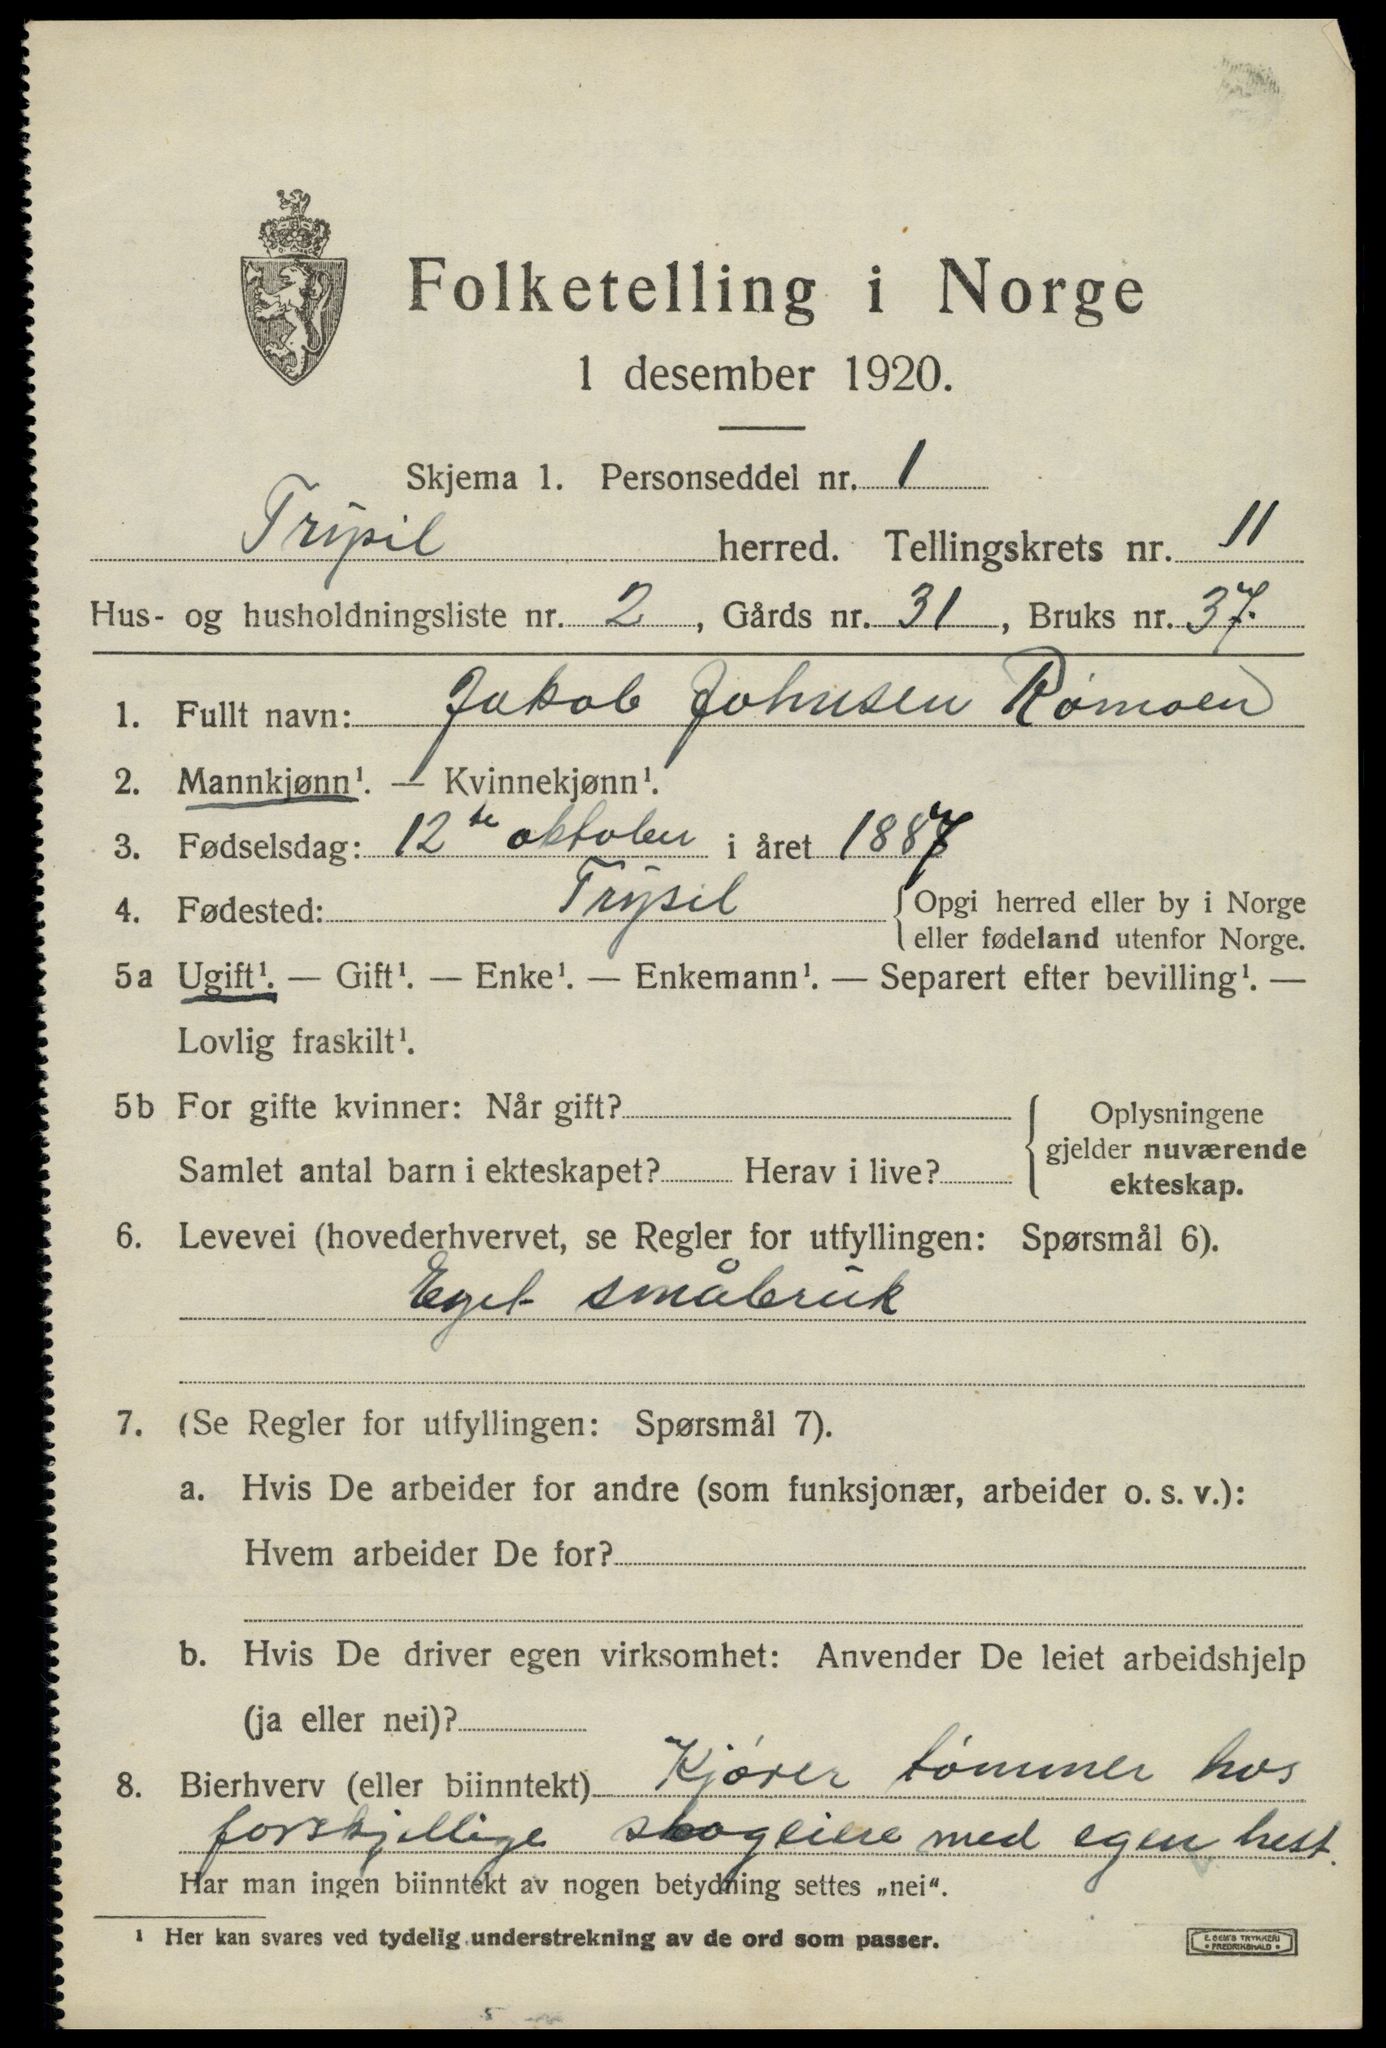 Folketelling i Norge
1 desember 1920.
Skjema 1. Personseddel nr. 1
Trysil herred. Tellingskrets nr. 11
Hus- og husholdningsliste nr. 2, Gårds nr. 31, Bruks nr. 37.
1. Fullt navn: Jakob Johnsen Rømoen
2. Mannkjønn¹. — Kvinnekjønn¹.
3. Fødselsdag: 12te oktober i året 1887
4. Fødested: Trysil {Opgi herred eller by i Norge
eller fødeland utenfor Norge.
5a Ugift¹. — Gift¹. — Enke¹. — Enkemann¹. — Separert efter bevilling¹. —
Lovlig fraskilt¹.
5b For gifte kvinner: Når gift?
Samlet antal barn i ekteskapet? Herav i live?
Oplysningene
gjelder nuværende
ekteskap.
6. Levevei (hovederhvervet, se Regler for utfyllingen: Spørsmål 6).
Eget småbruk
7. (Se Regler for utfyllingen: Spørsmål 7).
a. Hvis De arbeider for andre (som funksjonær, arbeider o. s. v.):
Hvem arbeider De for?
b. Hvis De driver egen virksomhet: Anvender De leiet arbeidshjelp
(ja eller nei)?
8. Bierhverv (eller biinntekt) Kjører tømmer hos
forskjellige skogeiere med egen hest.
Har man ingen biinntekt av nogen betydning settes „nei“.
¹ Her kan svares ved tydelig understrekning av de ord som passer.
E. SEM'S TRYKKERI
• FREDRIKSHALD •